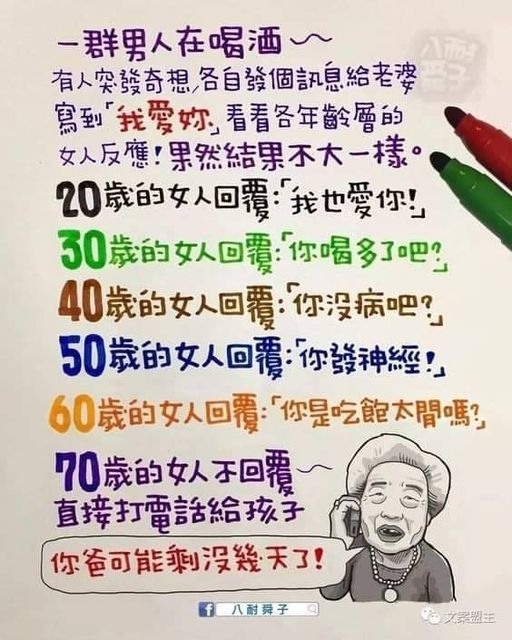 一群男人在喝酒～
八耐舜子
有人突發奇想,各自發個訊息給老婆
寫到「我愛妳」看看各年齡層的
女人反應!果然結果不大一樣。
20歲的女人回覆:「我也愛你!」
30歲的女人回覆:「你喝多了吧?」
40歲的女人回覆:「你沒病吧?」
50歲的女人回覆:「你發神經!」
60歲的女人回覆:「你是吃飽太閒嗎?」
70歲的女人不回覆～
直接打電話給孩子
你爸可能剩沒幾天了!
f 八耐舜子
文案盟主